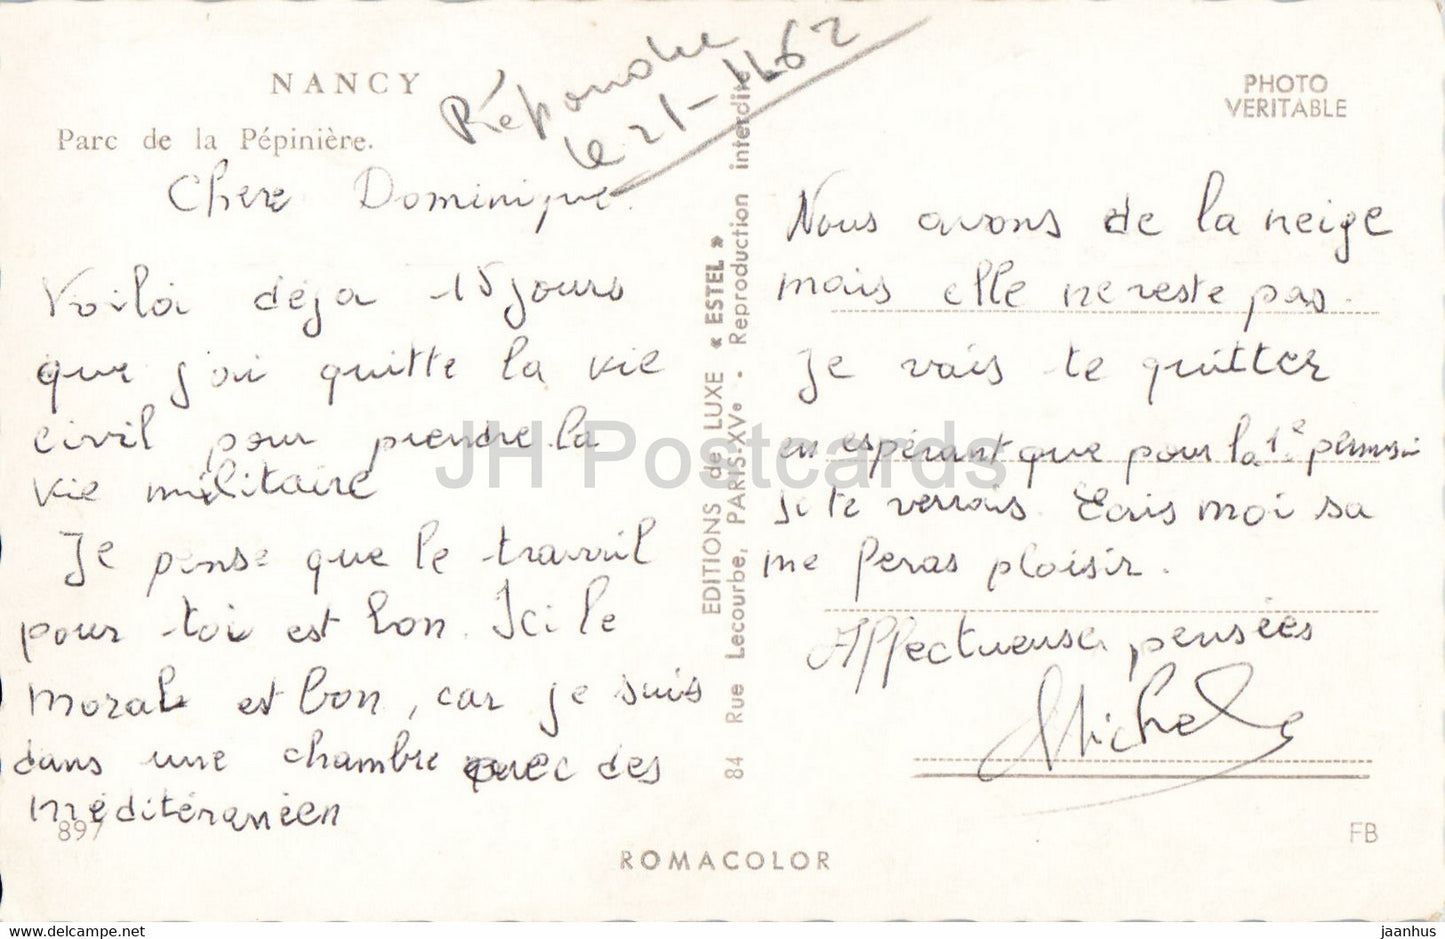 NANCY
Parc de la Pépinière.
Répondu
le 21-1-62
PHOTO
VERITABLE
Chere Dominique.
Voilà déja 15 jours
que j'ai quitte la vie
civil pour prendre la
vie militaire
Je pense que le travail
pour toi est bon. Ici le
moral est bon, car je suis
dans une chambre avec des
méditéranéen
897
EDITIONS de LUXE « ESTEL »
84 Rue Lecourbe, PARIS-XVe • Reproduction interdite
Nous avons de la neige
mais elle ne reste pas.
Je vais te quitter
en espérant que pour la 1e permission
je te verrais. Ecris moi sa
me feras plaisir.
Affectueuse pensées
Michel
FB
ROMACOLOR
JH Postcards
https://www.delcampe.net
jaanhus